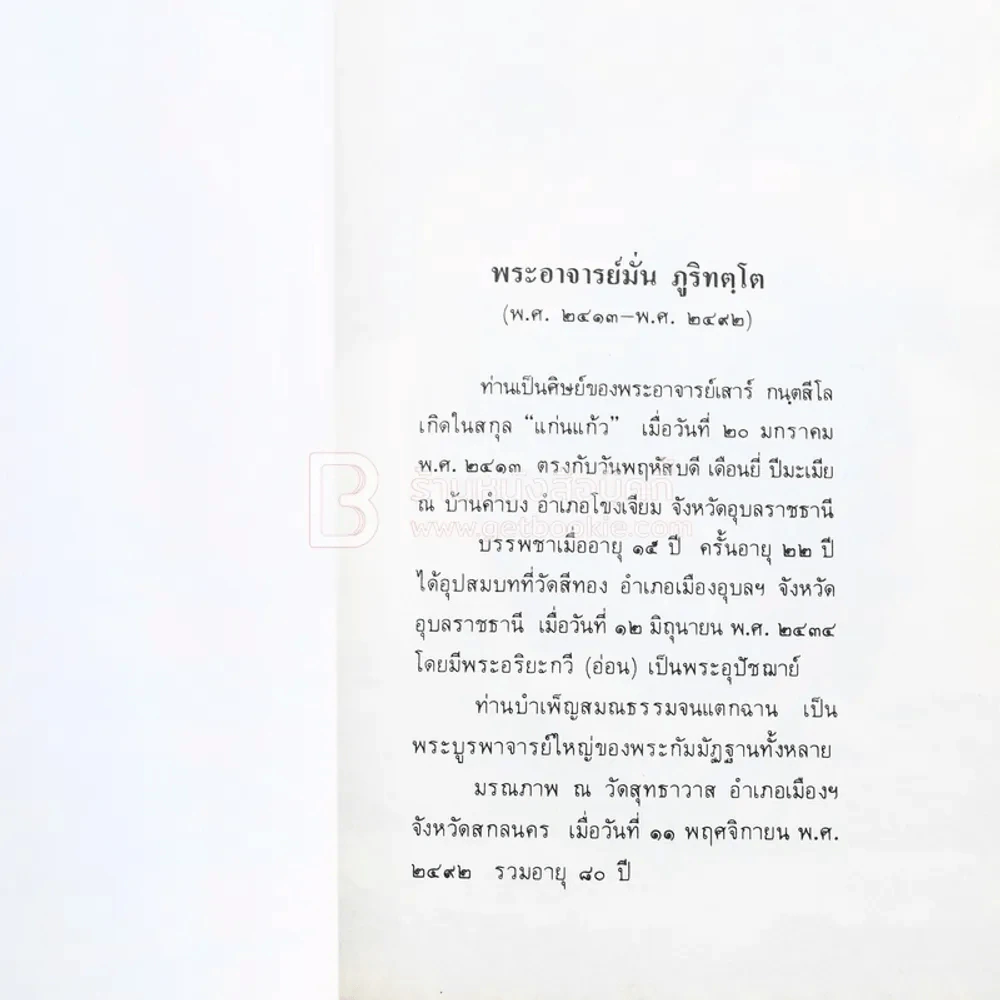 พระอาจารย์มั่น ภูริทตฺโต
(พ.ศ. ๒๔๑๓–พ.ศ. ๒๔๙๒)
ท่านเป็นศิษย์ของพระอาจารย์เสาร์ กนฺตสีโล
เกิดในสกุล “แก่นแก้ว” เมื่อวันที่ ๒๐ มกราคม
พ.ศ. ๒๔๑๓ ตรงกับวันพฤหัสบดี เดือนยี่ ปีมะเมีย
ณ บ้านคำบง อำเภอโขงเจียม จังหวัดอุบลราชธานี
บรรพชาเมื่ออายุ ๑๕ ปี ครั้นอายุ ๒๒ ปี
ได้อุปสมบทที่วัดสีทอง อำเภอเมืองอุบลฯ จังหวัด
อุบลราชธานี เมื่อวันที่ ๑๒ มิถุนายน พ.ศ. ๒๔๓๔
โดยมีพระอริยะกวี (อ่อน) เป็นพระอุปัชฌาย์
ท่านบำเพ็ญสมณธรรมจนแตกฉาน เป็น
พระบูรพาจารย์ใหญ่ของพระกัมมัฏฐานทั้งหลาย
มรณภาพ ณ วัดสุทธาวาส อำเภอเมืองฯ
จังหวัดสกลนคร เมื่อวันที่ ๑๑ พฤศจิกายน พ.ศ.
๒๔๙๒ รวมอายุ ๘๐ ปี
B
ร้านหนังสือบุ๊คกี้
www.getbookie.com